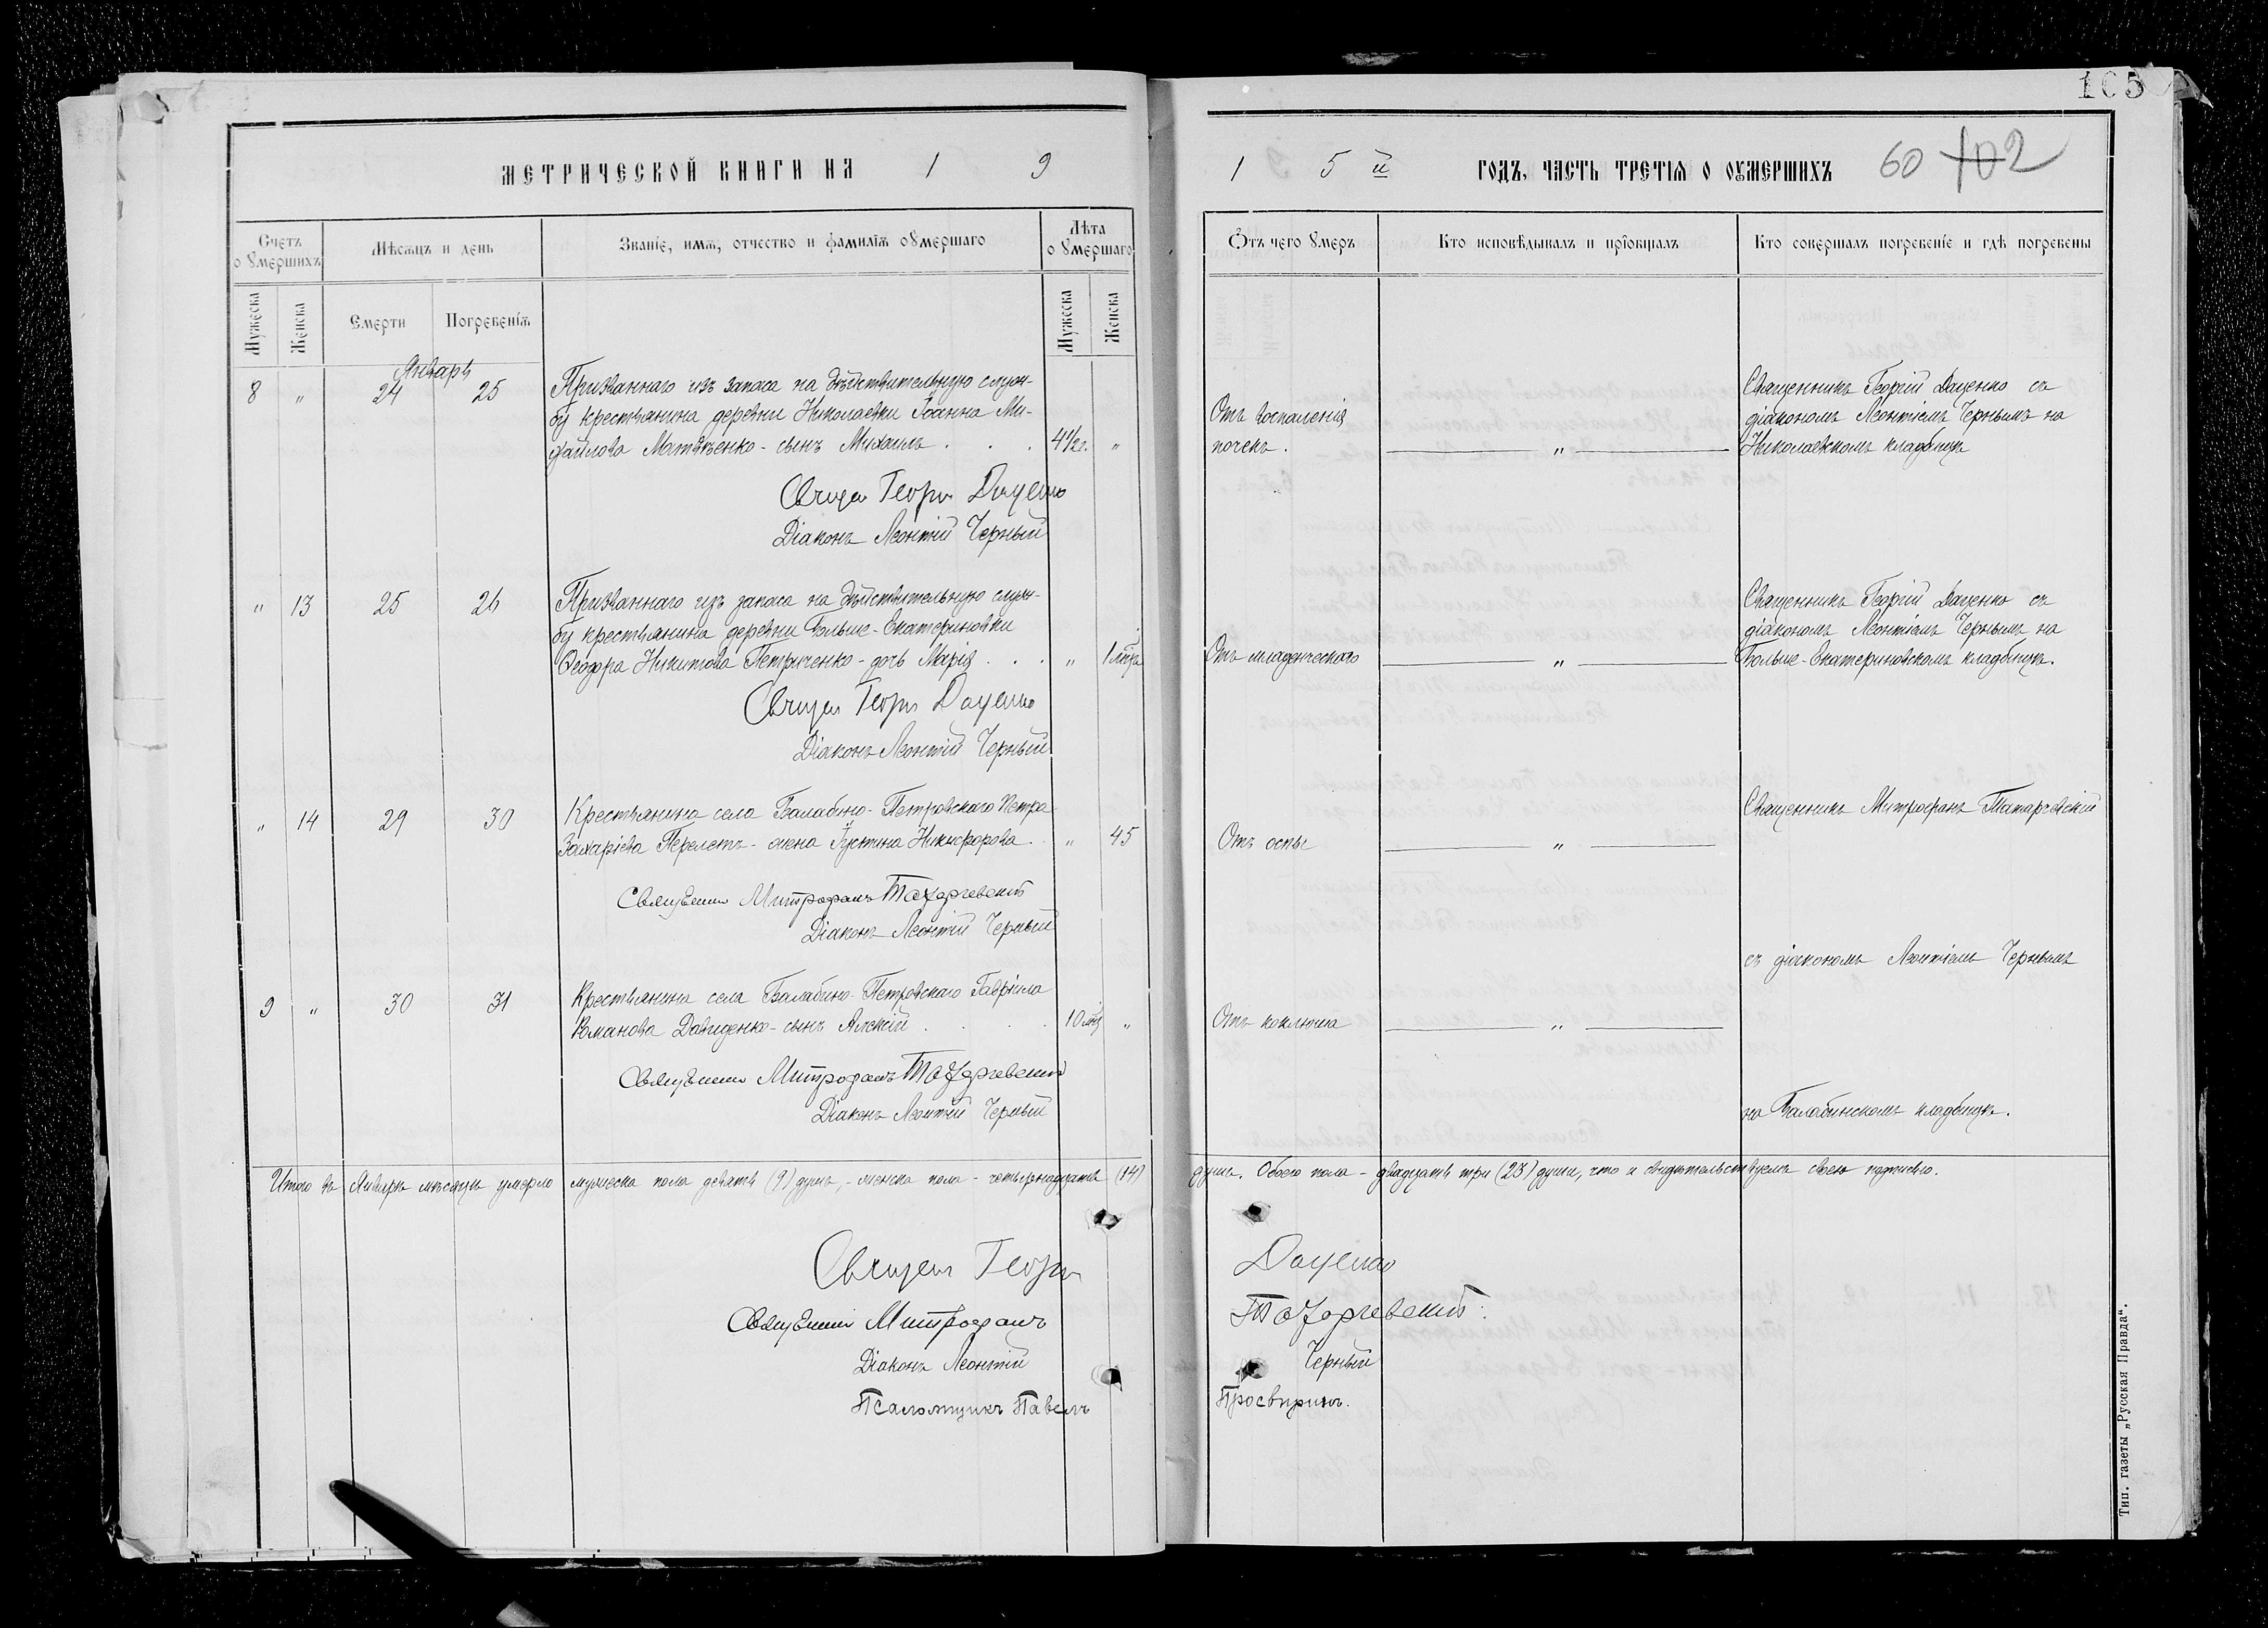 105
МЕТРИЧЕСКОЙ КНИГИ НА 1 9
1 5 й ГОДЪ, ЧАСТЬ ТРЕТІѦ О ОУМЕРШИХЪ 60 102
Счетъ
оумершихъ
Мѣсѧцъ и день
Званіе, имѧ, отчество и фамиліѧ оумершаго
Лѣта
оумершаго
Ѿтъ чего умеръ
Кто исповѣдывалъ и пріобщалъ
Кто совершалъ погребеніе и гдѣ погребены
Мужеска
Женска
Смерти
Погребеніѧ
Мужеска
Женска
Январь
8 " 24 25
Призваннаго изъ запаса на дѣйствительную служ-
бу крестьянина деревни Николаевки Іоанна Ми-
хайлова Матвѣенко - сынъ Михаилъ . . . 4½ г. "
Отъ воспаленія
почекъ.
"
Священникъ Георгій Даценко съ
діакономъ Леонтіемъ Чернымъ на
Николаевскомъ кладбищѣ
Священ Георгій Даценко
Діаконъ Леонтій Черный
" 13 25 26
Призваннаго изъ запаса на дѣйствительную служ-
бу крестьянина деревни Больше-Екатериновки
Ѳеодора Никитова Петриченко - дочь Марія . . . "
Отъ младенческаго
"
Священникъ Георгій Даценко съ
діакономъ Леонтіемъ Чернымъ на
Больше-Екатериновскомъ кладбищѣ.
Священ Георгій Даценко
Діаконъ Леонтій Черный
" 14 29 30
Крестьянина села Балабино-Петровскаго Петра
Захаріева Перелетъ - жена Іустина Никифорова . . " 45
Отъ оспы
"
Священникъ Митрофанъ Татарчевскій
Священникъ Митрофанъ
Діаконъ Леонтій Черный
съ діакономъ Леонтіемъ Чернымъ
9 " 30 31
Крестьянина села Балабино-Петровскаго Гавріила
Романова Давиденко - сынъ Алексій . . . . 10 мѣс "
Отъ коклюша
"
Священникъ Митрофанъ
Діаконъ Леонтій Черный
на Балабинскомъ кладбищѣ.
Итого въ Январѣ мѣсяцѣ умерло мужеска пола девять (9) душъ, - женска пола - четырнадцать (14)
душъ. Обоего пола - двадцать три (23) души, что и свидѣтельствуемъ своею подписью.
Священ Георгій Даценко
Священникъ Митрофанъ
Діаконъ Леонтій Черный
Псаломщикъ Павелъ Просвиринъ.
Тип. газеты „Русская Правда“.